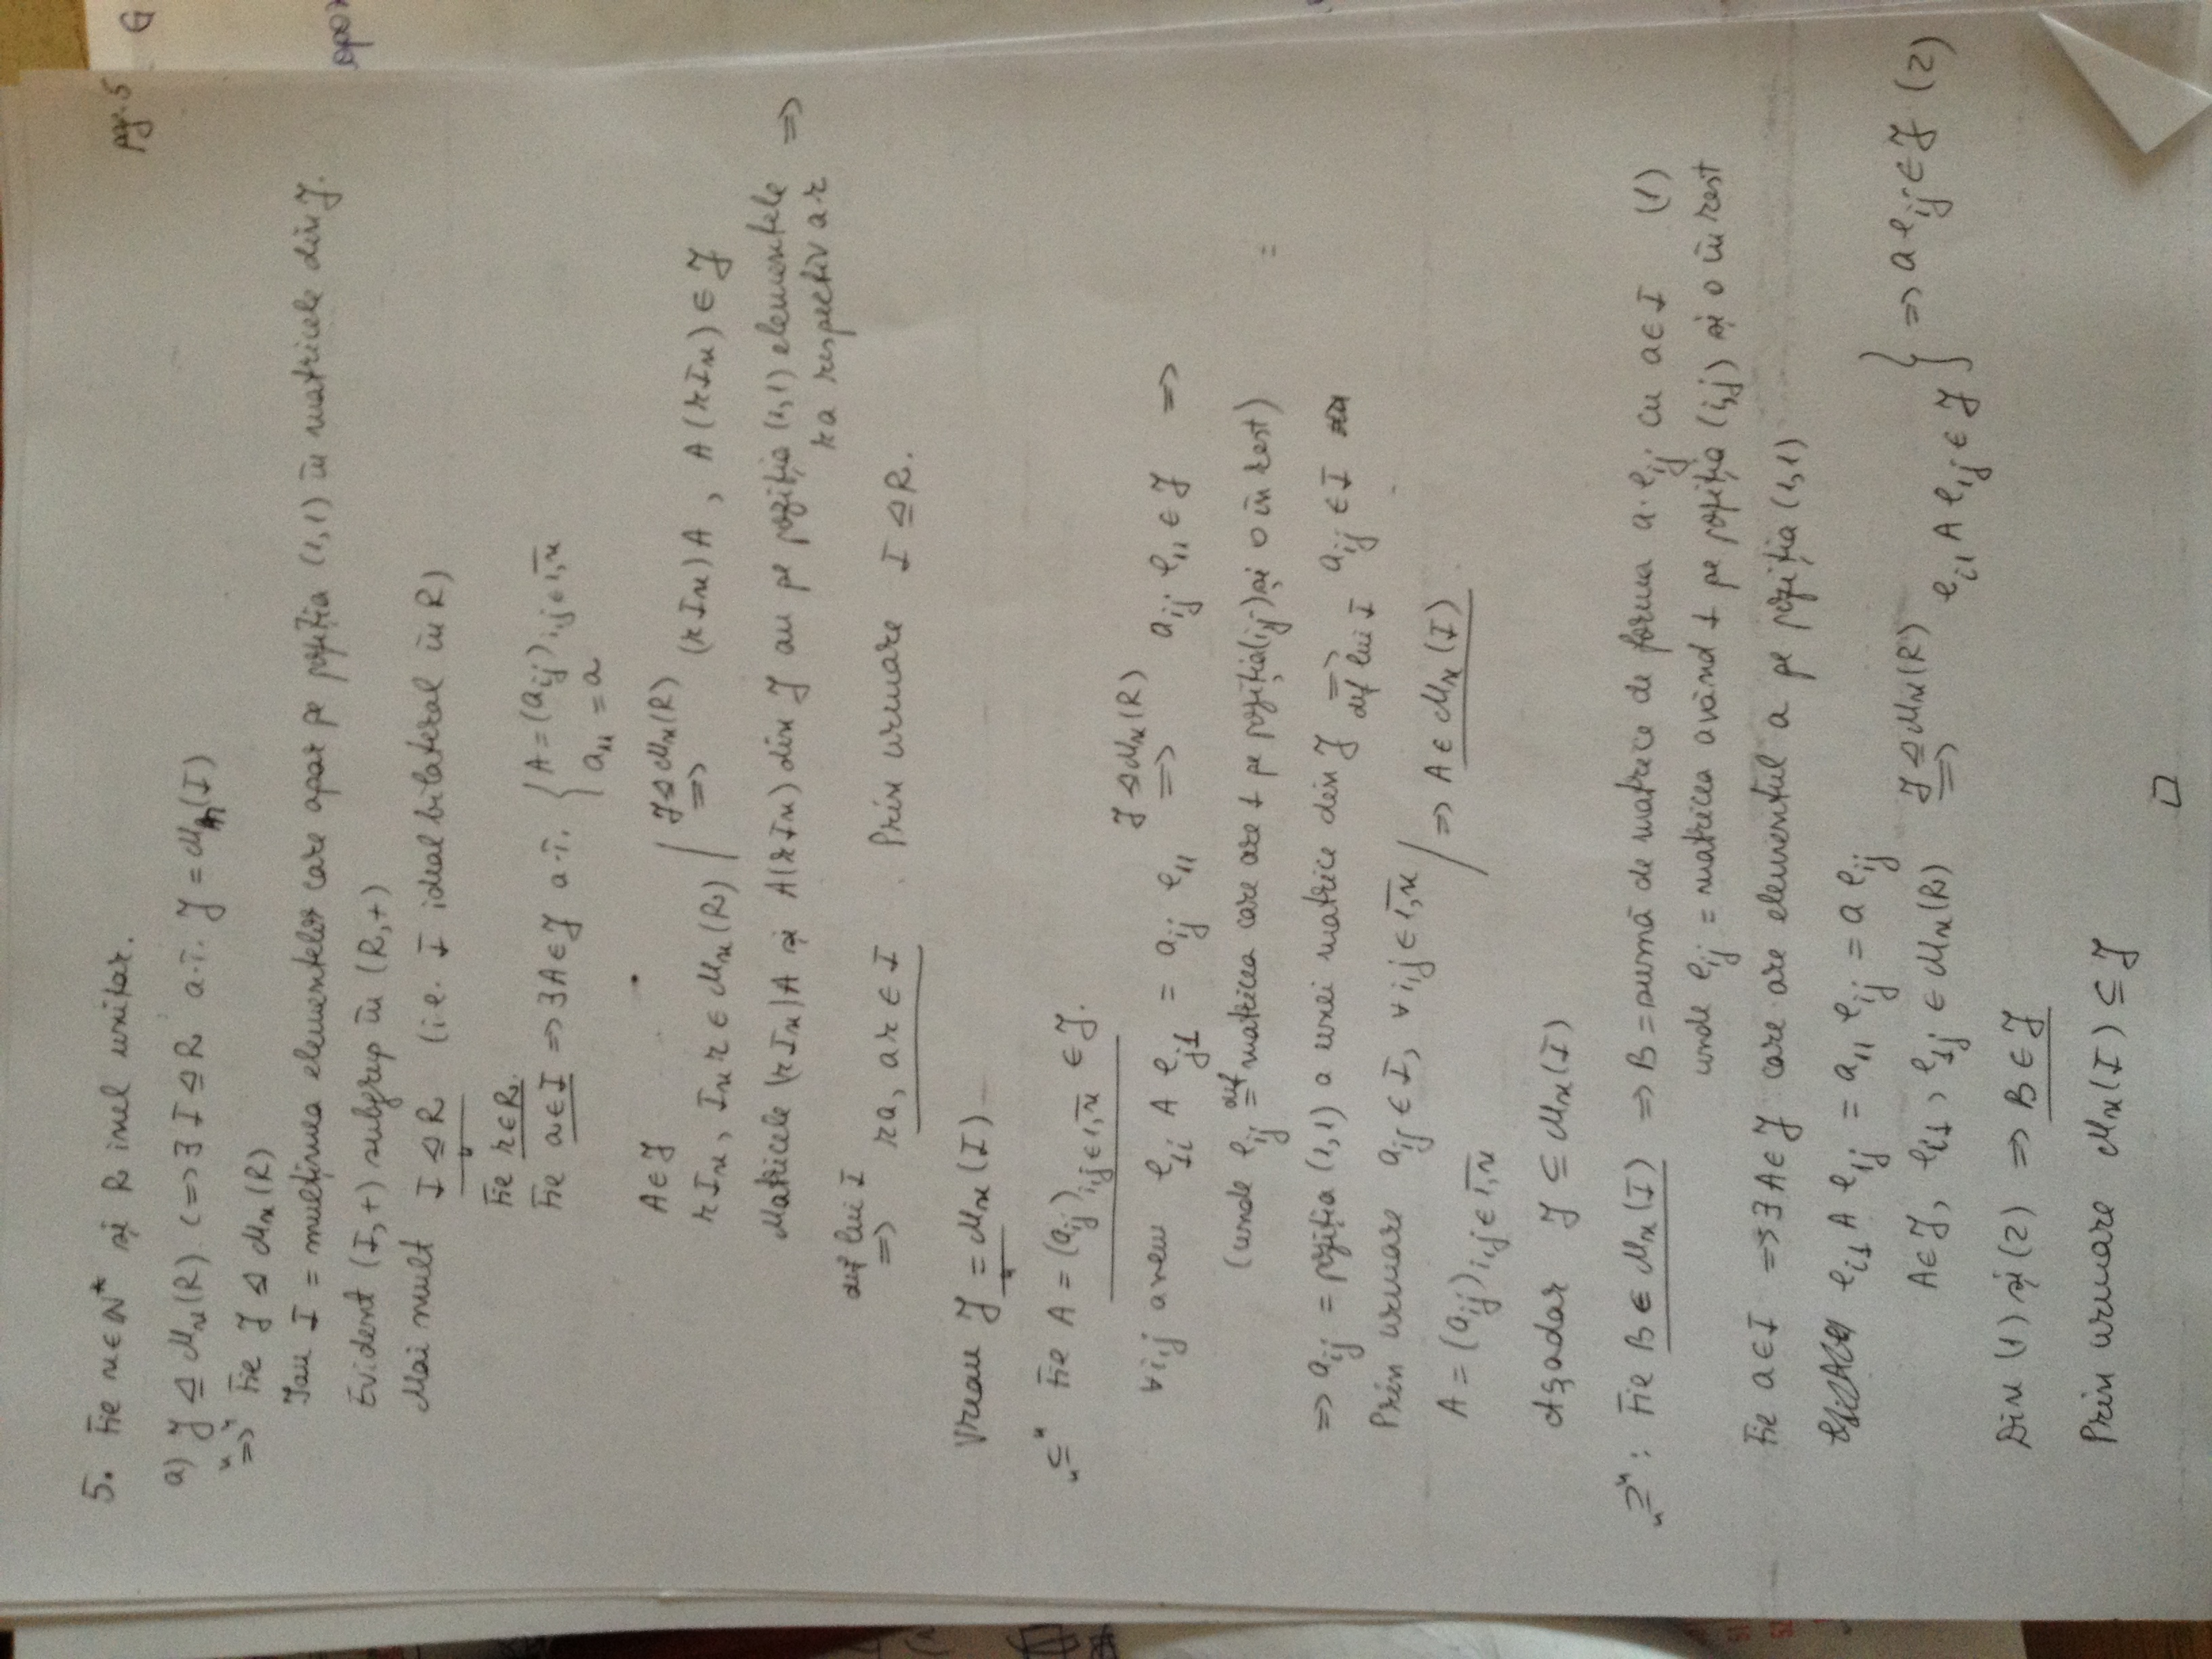 pg. 5
5. Fie n∈ℕ* și R inel unitar.
a) J ⊴ Mn(R) <=> ∃ I ⊴ R a.î. J = Mn(I)
"=>" Fie J ⊴ Mn(R)
Iau I = mulțimea elementelor care apar pe poziția (1,1) în matricele din J.
Evident (I,+) subgrup în (R,+)
Mai mult I ⊴ R (i.e. I ideal bilateral în R)
Fie r∈R.
Fie a∈I => ∃A∈J a.î. { A = (aij)i,j∈1,n̅
a11 = a
A∈J
rIn, In r ∈ Mn(R) | J⊴Mn(R) => (rIn)A , A(rIn) ∈ J
Matricele (rIn)A și A(rIn) din J au pe poziția (1,1) elementele =>
ra respectiv ar
def lui I => ra, ar ∈ I . Prin urmare I ⊴ R.
Vreau J = Mn(I)
"⊆" Fie A = (aij)i,j∈1,n̅ ∈ J.
∀i,j avem e1i A ej1 = aij e11 J⊴Mn(R) => aij e11 ∈ J =>
(unde eij def= matricea care are 1 pe poziția(i,j) și 0 în rest) =
=> aij = poziția (1,1) a unei matrice din J => def lui I aij ∈ I
Prin urmare aij ∈ I, ∀ i,j ∈ 1,n̅
A = (aij)i,j∈1,n̅ | => A ∈ Mn(I)
Așadar J ⊆ Mn(I)
"⊇": Fie B ∈ Mn(I) => B = sumă de matrice de forma a·eij cu a∈I (1)
unde eij = matricea având 1 pe poziția (i,j) și 0 în rest
Fie a∈I => ∃A∈J care are elementul a pe poziția (1,1)
ei1 A e1j = a11 eij = a eij
A∈J, ei1, e1j ∈ Mn(R) J⊴Mn(R) => ei1 A e1j ∈ J } => a eij ∈ J (2)
Din (1) și (2) => B ∈ J
Prin urmare Mn(I) ⊆ J
□